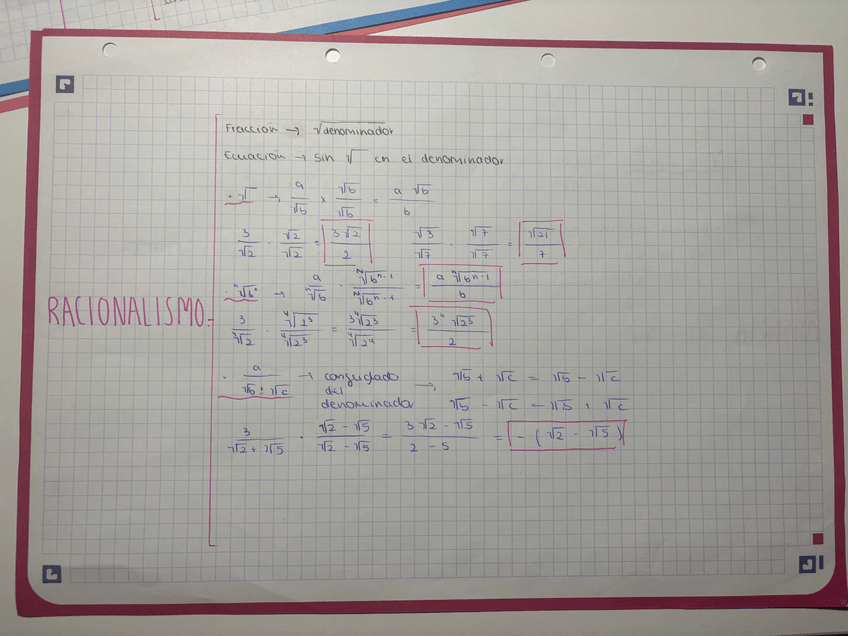 RACIONALISMO-
Fracción → √denominador
Ecuación → sin √ en el denominador.
· √ → a/√b × √b/√b = a √b/b
3/√2 · √2/√2 = 3√2/2    √3/√7 · √7/√7 = √21/7
· ⁿ√b → a/ⁿ√b · ᴺ√bⁿ⁻¹/ᴺ√bⁿ⁻¹ = a ⁿ√bⁿ⁻¹/b
3/⁴√2 · ⁴√2³/⁴√2³ = 3⁴√2³/⁴√2⁴ = 3⁴ √2³/2
· a/√b ± √c → conjudado del denominador → √b + √c = √b - √c
√5 - √c = √5 + √c
3/√2 + √5 · √2 - √5/√2 - √5 = 3 √2 - √5/2 - 5 = - (√2 - √5)